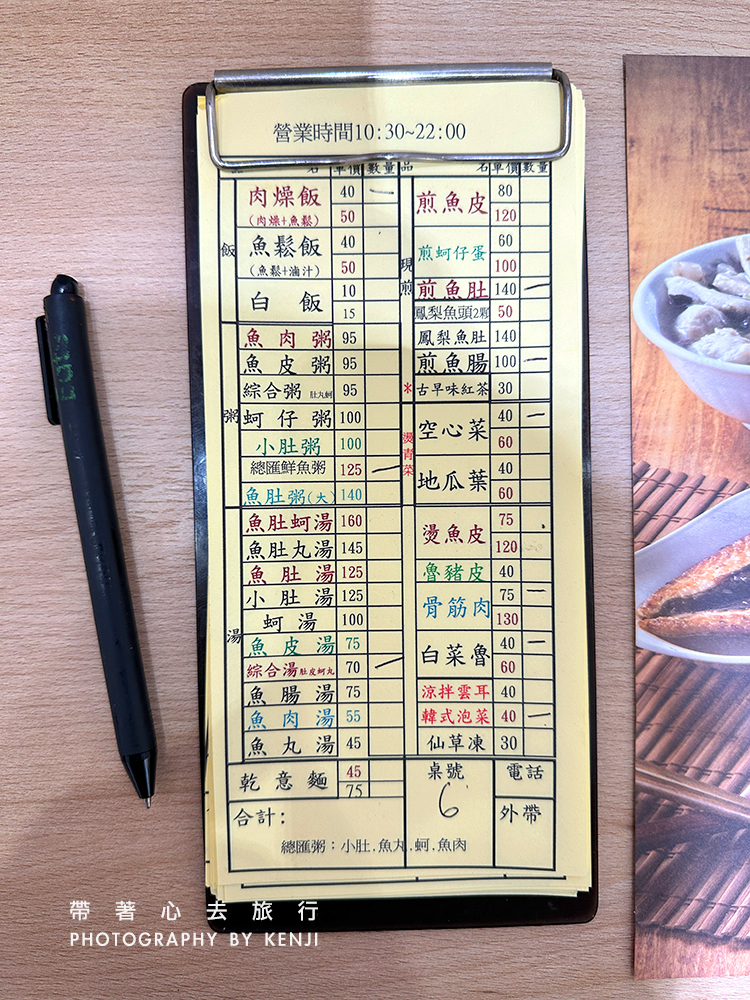 營業時間10:30~22:00
名 單價 數量
飯
肉燥飯 40 一
(肉燥+魚鬆) 50
魚鬆飯 40
(魚鬆+滷汁) 50
白飯 10
15
粥
魚肉粥 95
魚皮粥 95
綜合粥 肚丸蚵 95
蚵仔粥 100
小肚粥 100
總匯鮮魚粥 125 一
魚肚粥(大) 140
湯
魚肚蚵湯 160
魚肚丸湯 145
魚肚湯 125
小肚湯 125
蚵湯 100
魚皮湯 75
綜合湯 肚皮蚵丸 70 一
魚腸湯 75
魚肉湯 55
魚丸湯 45
乾意麵 45
75
品名 單價 數量
現煎
煎魚皮 80
120
煎蚵仔蛋 60
100
煎魚肚 140 一
鳳梨魚頭2顆 50
鳳梨魚肚 140
煎魚腸 100 一
*古早味紅茶 30
燙青菜
空心菜 40 一
60
地瓜葉 40
60
燙魚皮 75
120
魯豬皮 40
骨筋肉 75 一
130
白菜魯 40 一
60
涼拌雲耳 40
韓式泡菜 40 一
仙草凍 30
桌號 電話
6
合計: 外帶
總匯粥:小肚.魚丸.蚵.魚肉
帶著心去旅行
PHOTOGRAPHY BY KENJI